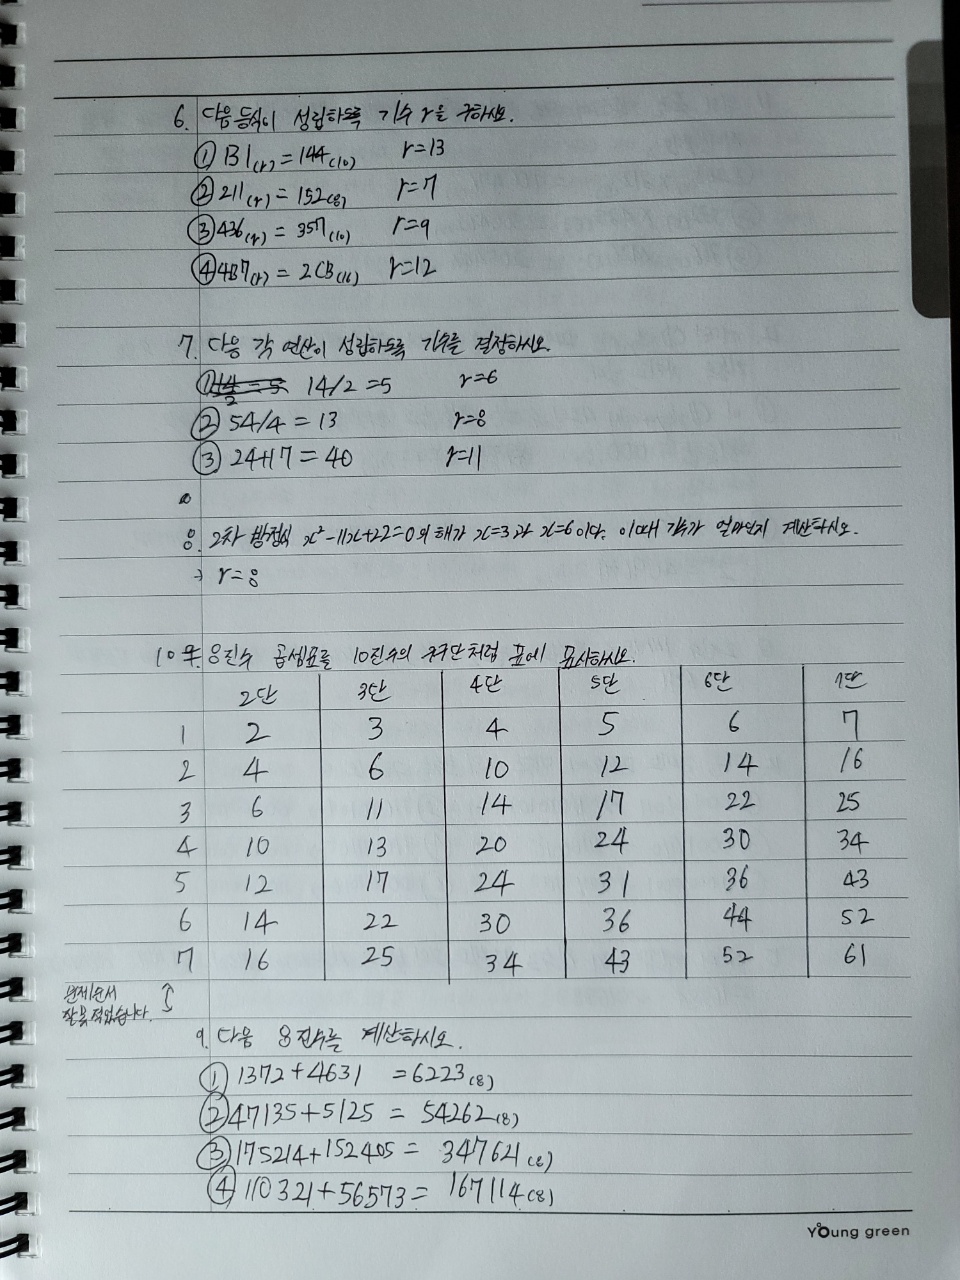 6. 다음 등식이 성립하도록 기수 r을 구하시오.
① B1(r) = 144(10) r=13
② 211(r) = 152(8) r=7
③ 436(r) = 357(10) r=9
④ 4B7(r) = 2CB(16) r=12
7. 다음 각 연산이 성립하도록 기수를 결정하시오.
① 14/2 = 5 14/2 =5 r=6
② 54/4 = 13 r=8
③ 24+17 = 40 r=11
8. 2차 방정식 x²-11x+22=0의 해가 x=3과 x=6이다. 이때 기수가 얼마인지 계산하시오.
→ r=8
10 8진수 곱셈표를 10진수의 구구단처럼 표에 표시하시오.
2단 3단 4단 5단 6단 7단
1 2 3 4 5 6 7
2 4 6 10 12 14 16
3 6 11 14 17 22 25
4 10 13 20 24 30 34
5 12 17 24 31 36 43
6 14 22 30 36 44 52
7 16 25 34 43 52 61
문제순서
잘못적었습니다. ↕
9. 다음 8진수를 계산하시오.
① 1372+4631 =6223(8)
② 47135+5125 = 54262(8)
③ 175214+152405 = 347621(8)
④ 110321+56573 = 167114(8)
Young green